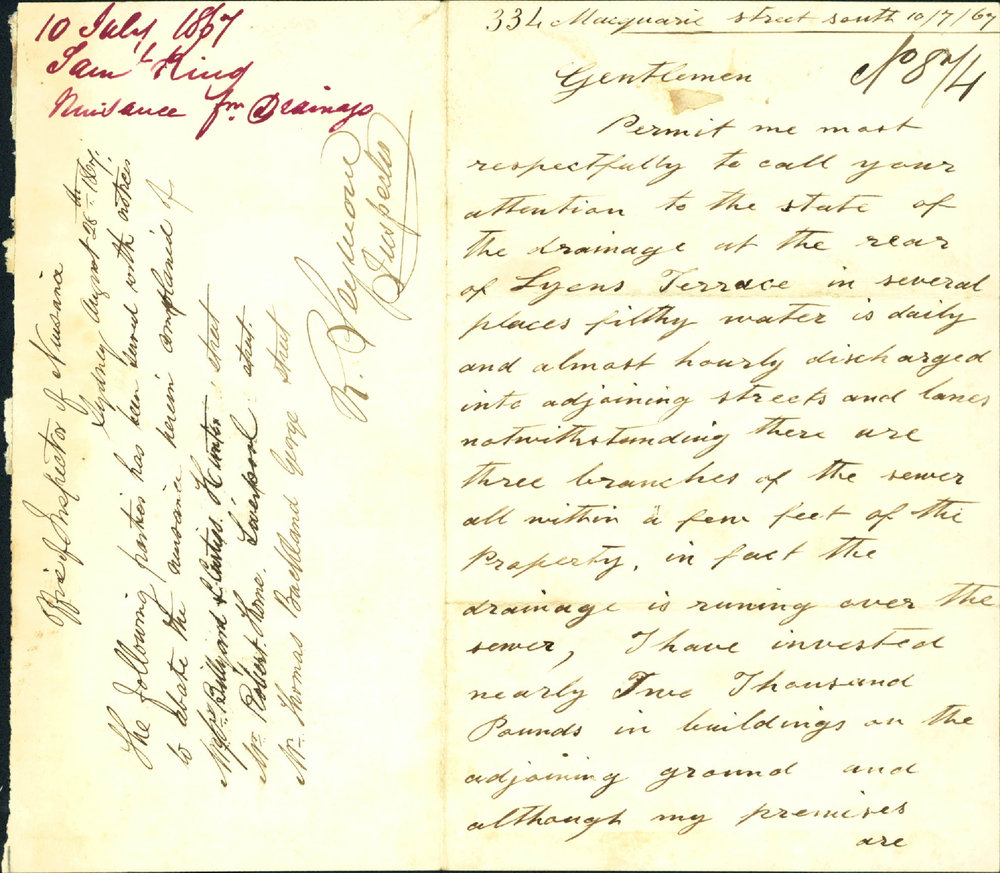 10 July 1867
Saml King
Nuisance fm Drainage
Office of Inspector of Nuisance
Sydney August 28th 1867.
The following parties has been served with notices
to abate the nuisance herein complained of
Messrs Billyard & Curtis. Hunter street
Mr. Robert Horne. Liverpool street.
Mr. Thomas Backland George street
R. Seymour
Inspector
334 Macquarie street south 10/7/67
No 874
Gentlemen
Permit me most
respectfully to call your
attention to the state of
the drainage at the rear
of Lyens Terrace in several
places filthy water is daily
and almost hourly discharged
into adjoining streets and lanes
notwithstanding there are
three branches of the sewer
all within a few feet of the
Property, in fact the
drainage is runing over the
sewer, I have invested
nearly Two Thousand
Pounds in buildings on the
adjoining ground and
although my premises
are